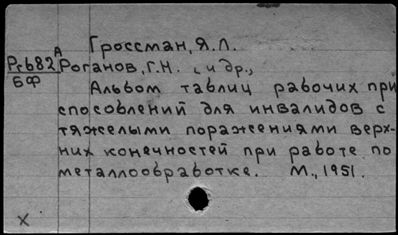 Гроссман, Я.Л.
А
Рг682 Роганов, Г.Н. и др.,
БФ
Альбом таблиц рабочих при
способлений для инвалидов с
тяжелыми поражениями верх-
них конечностей при работе по
металлообработке. М., 1951.
х